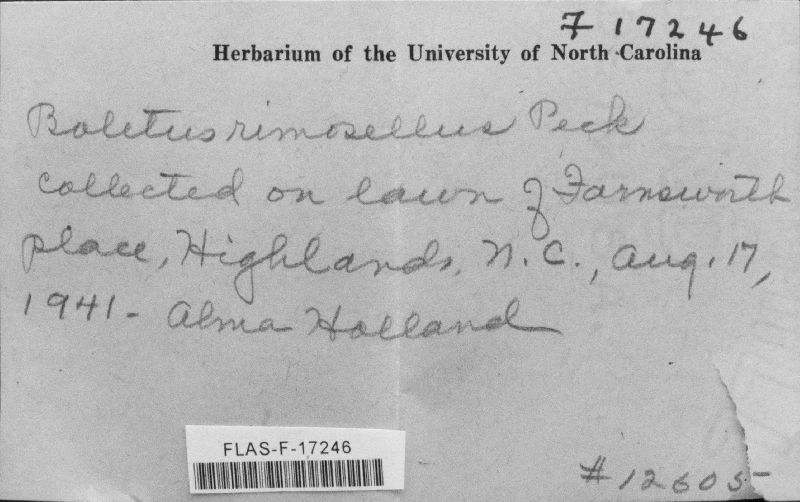 F 17246
Herbarium of the University of North Carolina
Boletus rimosellus Peck
collected on lawn of Farnsworth
place, Highlands, N.C., Aug. 17,
1941- Alma Holland
FLAS-F-17246
#12605